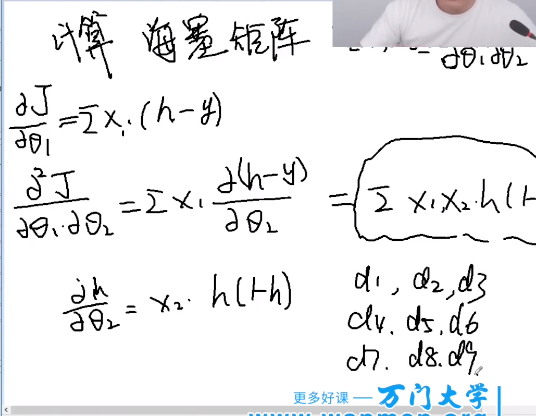 计算 海塞矩阵
∂θ₁∂θ₂
∂J/∂θ₁ = Σ x₁ (h-y)
∂²J/∂θ₁·∂θ₂ = Σ x₁ ∂(h-y)/∂θ₂ = Σ x₁x₂·h(1-
∂h/∂θ₂ = x₂· h(1-h)
d1, d2, d3
d4. d5. d6
d7. d8. d9.
更多好课 — 万门大学